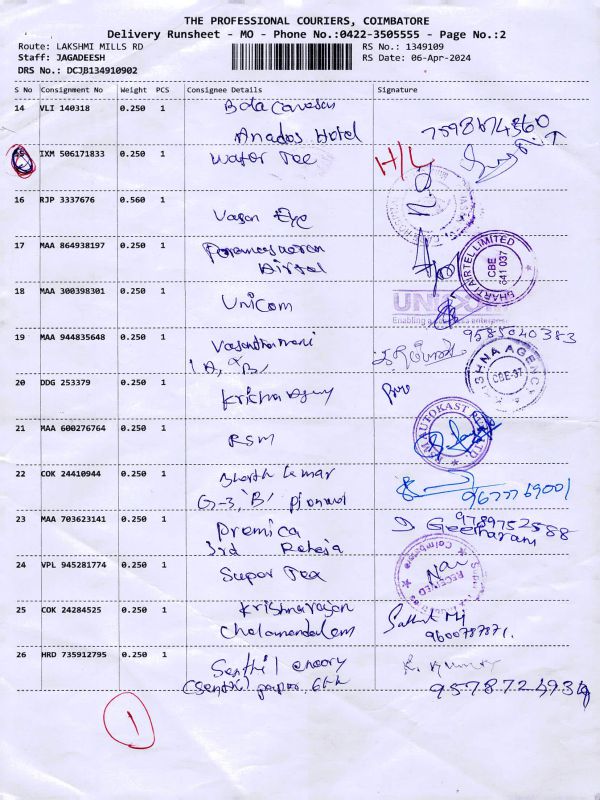 THE PROFESSIONAL COURIERS, COIMBATORE
Delivery Runsheet - MO - Phone No.:0422-3505555 - Page No.:2
Route: LAKSHMI MILLS RD
RS No.: 1349109
Staff: JAGADEESH
RS Date: 06-Apr-2024
DRS No.: DCJB134910902
S No Consignment No Weight PCS Consignee Details Signature
14 VLI 140318 0.250 1
Hotel
15 IXM 506171833 0.250 1 Water Tec H/L
16 RJP 3337676 0.560 1 Vasan Eye
17 MAA 864938197 0.250 1
Airtel
BHARTI AIRTEL LIMITED
CBE
641 037
18 MAA 300398301 0.250 1 Unicom
Enabling
19 MAA 944835648 0.250 1 Vasanthamani 9585040383
20 DDG 253379 0.250 1 Krishna Agency
KRISHNA AGENCY
CBE-37
21 MAA 600276764 0.250 1 RSM
AUTOKAST
22 COK 24410944 0.250 1 Bharth Kumar
G-3, 'B' 9677769001
23 MAA 703623141 0.250 1 Premica 9789752588
3rd Raheja Geetharani
24 VPL 945281774 0.250 1 Super Tex
RECEIVED
Coimbatore
25 COK 24284525 0.250 1 Krishnarajan
Cholamandalam 9600787871.
26 HRD 735912795 0.250 1 Senthil
6th 9578724934
1